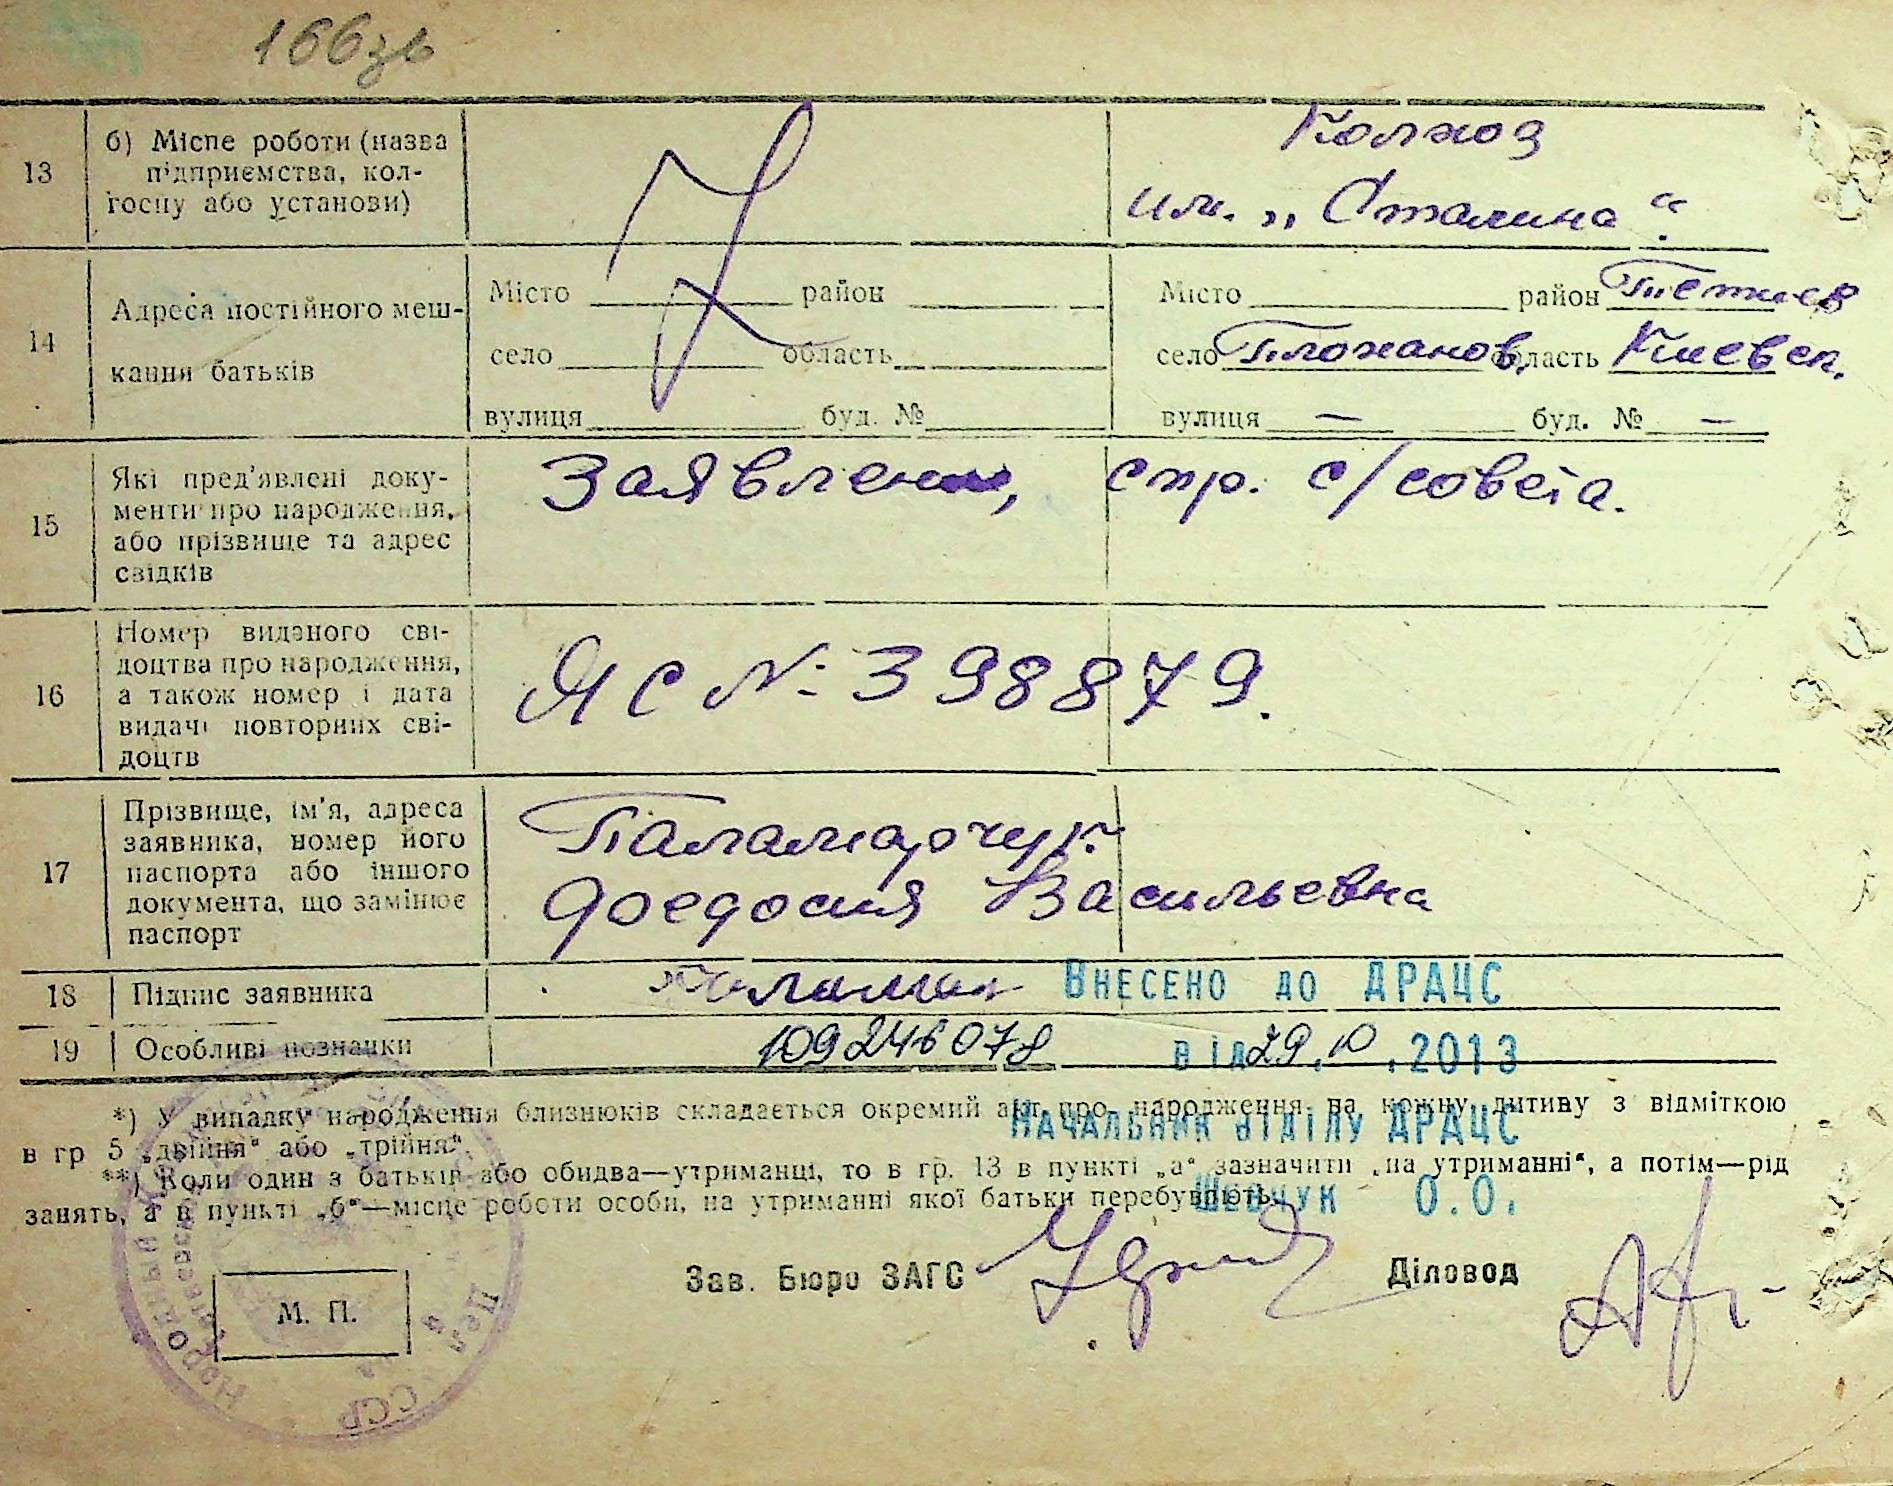 166зв
13
б) Місце роботи (назва
підприємства, кол-
госпу або установи)
Колхоз
им. „Сталина“.
14
Адреса постійного меш-
кання батьків
Місто район
село область
вулиця буд. №
Місто район Тетиев
село Пложанов. область Киевск.
вулиця — буд. № —
15
Які пред'явлені доку-
менти про народження,
або прізвище та адрес
свідків
Заявление, спр. с/совета.
16
Номер виданого сві-
доцтва про народження,
а також номер і дата
видачі повторних сві-
доцтв
ЯС № 398879.
17
Прізвище, ім'я, адреса
заявника, номер його
паспорта або іншого
документа, що замінює
паспорт
Паламарчук
Феодосия Васильевна
18
Підпис заявника
Паламар
Внесено до ДРАЦС
19
Особливі позначки
109246078
від 29.10.2013
*) У випадку народження близнюків складається окремий акт про народження на кожну дитину з відміткою
в гр 5 „двійня“ або „трійня“.
Начальник відділу ДРАЦС
**) Коли один з батьків або обидва—утриманці, то в гр. 13 в пункті „а“ зазначити „на утриманні“, а потім—рід
занять, а в пункті „б“—місце роботи особи, на утриманні якої батьки перебувають.
Шевчук О.О.
Зав. Бюро ЗАГС
Діловод
М. П.
ССР